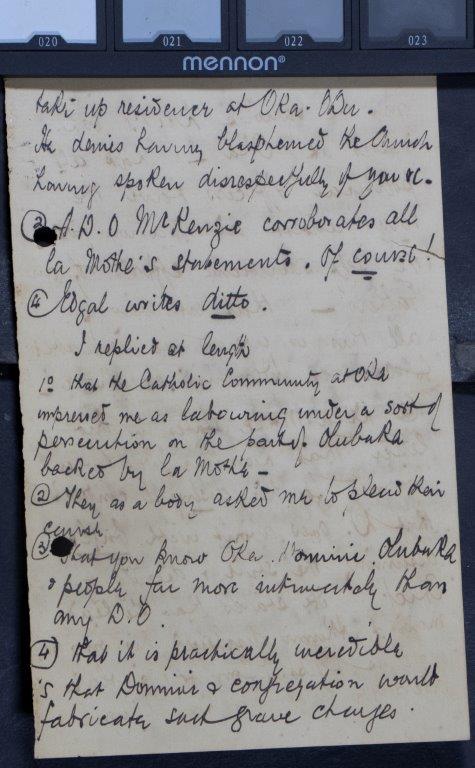 020 021 022 023
mennon®
take up residence at Oka-Odu.
He denies having blasphemed the Church
having spoken disrespectfully of you &c.
③ A.D.O McKenzie corroborates all
la Mothe's statements. Of course!
④ Edgal writes ditto.
I replied at length
1º that the Catholic Community at Oka
impressed me as labouring under a sort of
persecution on the part of Olubaka
backed by la Mothe –
② They as a body asked me to plead their
cause
③ That you know Oka, Dominic, Olubaka
& people far more intimately than
any D.O.
④ that it is practically incredible
that Dominic & congregation would
fabricate such grave charges.